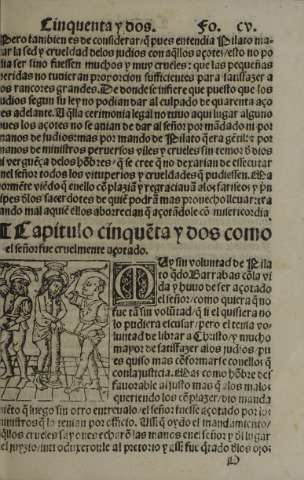 Cinquenta y dos. Fo. CV.
Pero tambien es de considerar/q̃ pues entendia Pilato ma
tar la sed y crueldad delos judios con aq̃llos açotes/esto no po
dia ser sino fuessen muchos y muy crueles: que las pequeñas
heridas no tuuieran proporcion sufficientes para satisfazer a
los rancores grandes. De donde se infiere que puesto que los
judios segun su ley no podian dar al culpado de quarenta aço
tes adelante. Aq̃lla cerimonia legal no tuuo aqui lugar alguno
pues los açotes no se auian de dar al señor por mãdado ni por
manos de judios: mas por mando de Pilato q̃ era gẽtil: ⁊ por
manos de ministros peruersos viles y crueles sin temor ð dios
ni verguẽça delos hõbres/ q̃ se cree q̃ no dexarian de essecutar
enel señor todos los vituperios y crueldades q̃ pudiessen. Ma
yormẽte viẽdo q̃ enello cõplaziã y regraciauã alos fariseos y prin
cipes ðlos sacerdotes de quiẽ podrã mas prouecho lleuar: tra
tando mal aquiẽ ellos aborrecian q̃ açotãdole cõ misericordia.
¶ Capitulo cinquẽta y dos como
el señor fue cruelmente açotado.
MUy sin voluntad de Pila
to q̃do Barrabas cõla vi
da y huuo de ser açotado
el señor/como quiera q̃ no
fue tã sin volũtad/q̃ si el quisiera no
lo pudiera escusar/pero el tenia vo
luntad de librar a Christo/y mucho
mayor de satisfazer alos judios/pu
es quiso mas cõformarse conellos q̃
conla justicia. Mas como hõbre des
fauorable al justo mas q̃ alos malos
queriendo los cõplazer/dio manda
miẽto q̃ luego sin otro entreualo/el señor fuesse açotado por los
ministros q̃ lo tenian por officio. Assi q̃ oydo el mandamiento/
aq̃llos crueles sayones echarõ las manos enel señor y ðl lugar
del juyzio/introduxeronle al pretorio y assi fue q̃tado ðlos ojos